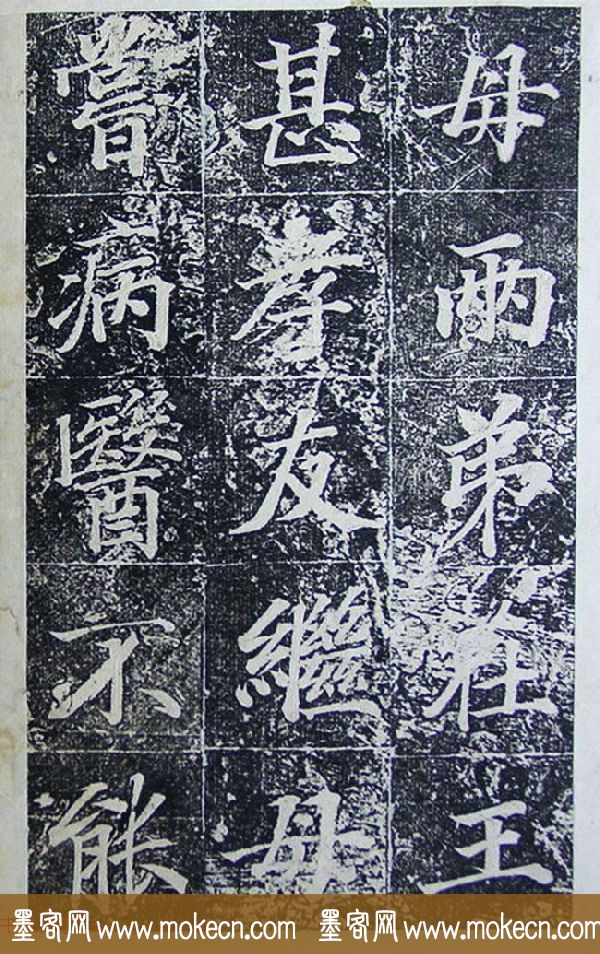 母兩弟莊王
甚孝友繼母
嘗病醫不能
墨客网 www.mokecn.com 墨客网 www.mokecn.com